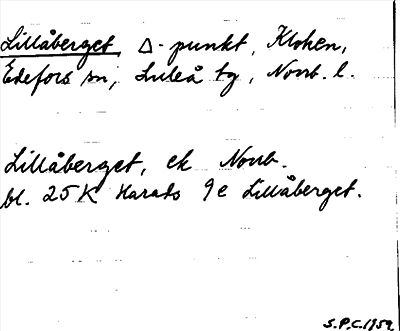 Lillåberget, Δ-punkt, Klohen,
Edefors sn, Luleå tg, Norrb. l.
Lillåberget, ek Norrb.
bl. 25 K Harads 9e Lillåberget.
S.P.C. 1959